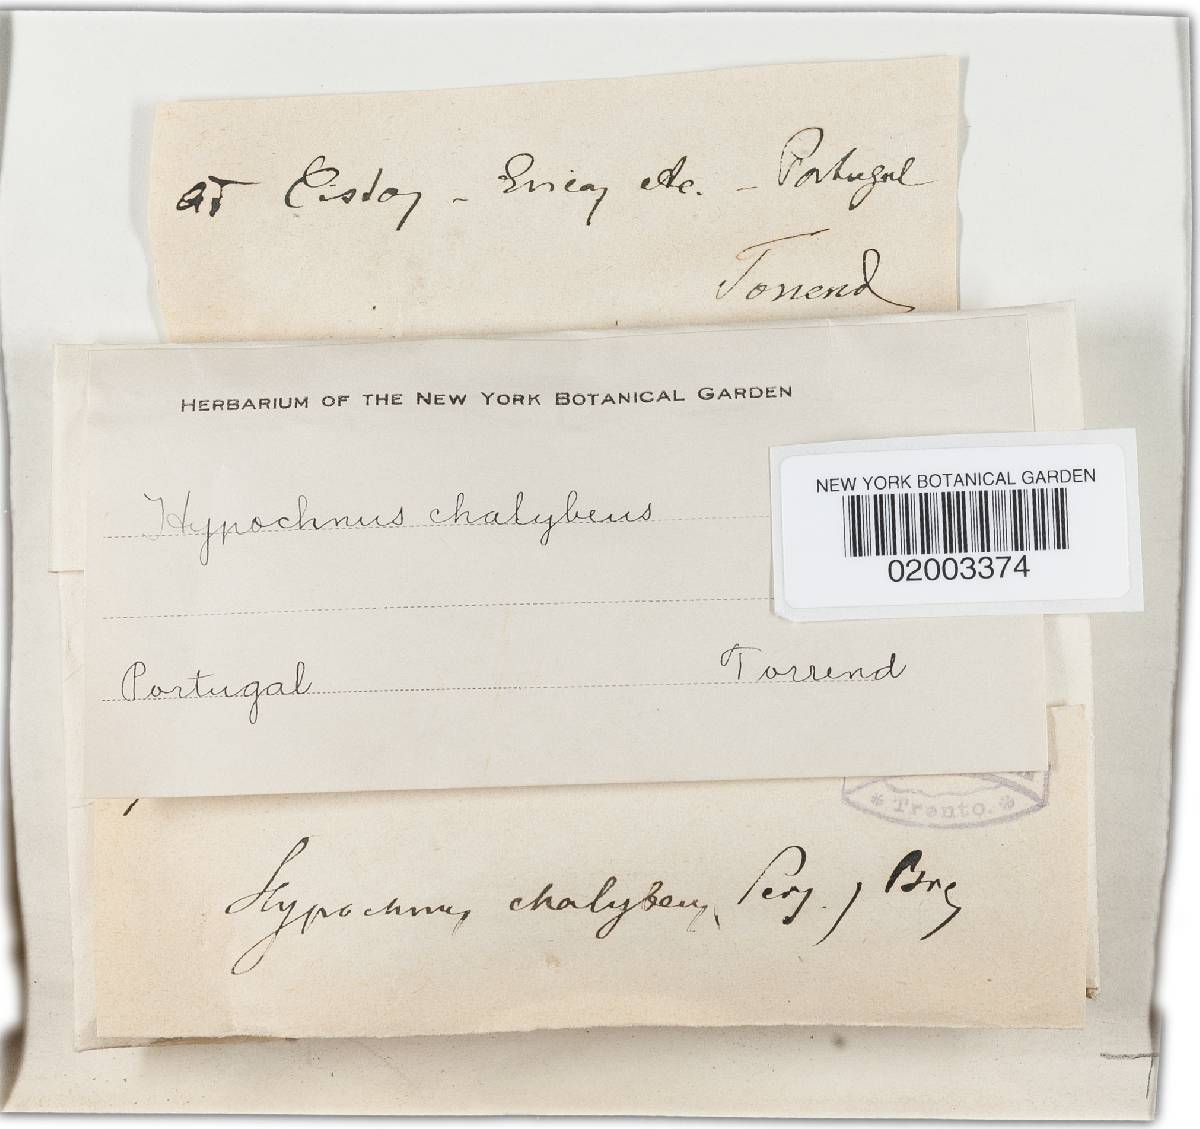 ad Cistos - Ericas etc. - Portugal
Torrend
HERBARIUM OF THE NEW YORK BOTANICAL GARDEN
Hypochnus chalybeus
NEW YORK BOTANICAL GARDEN
02003374
Portugal Torrend
* Trento. *
Hypochnus chalybeus Pers. ) Bres